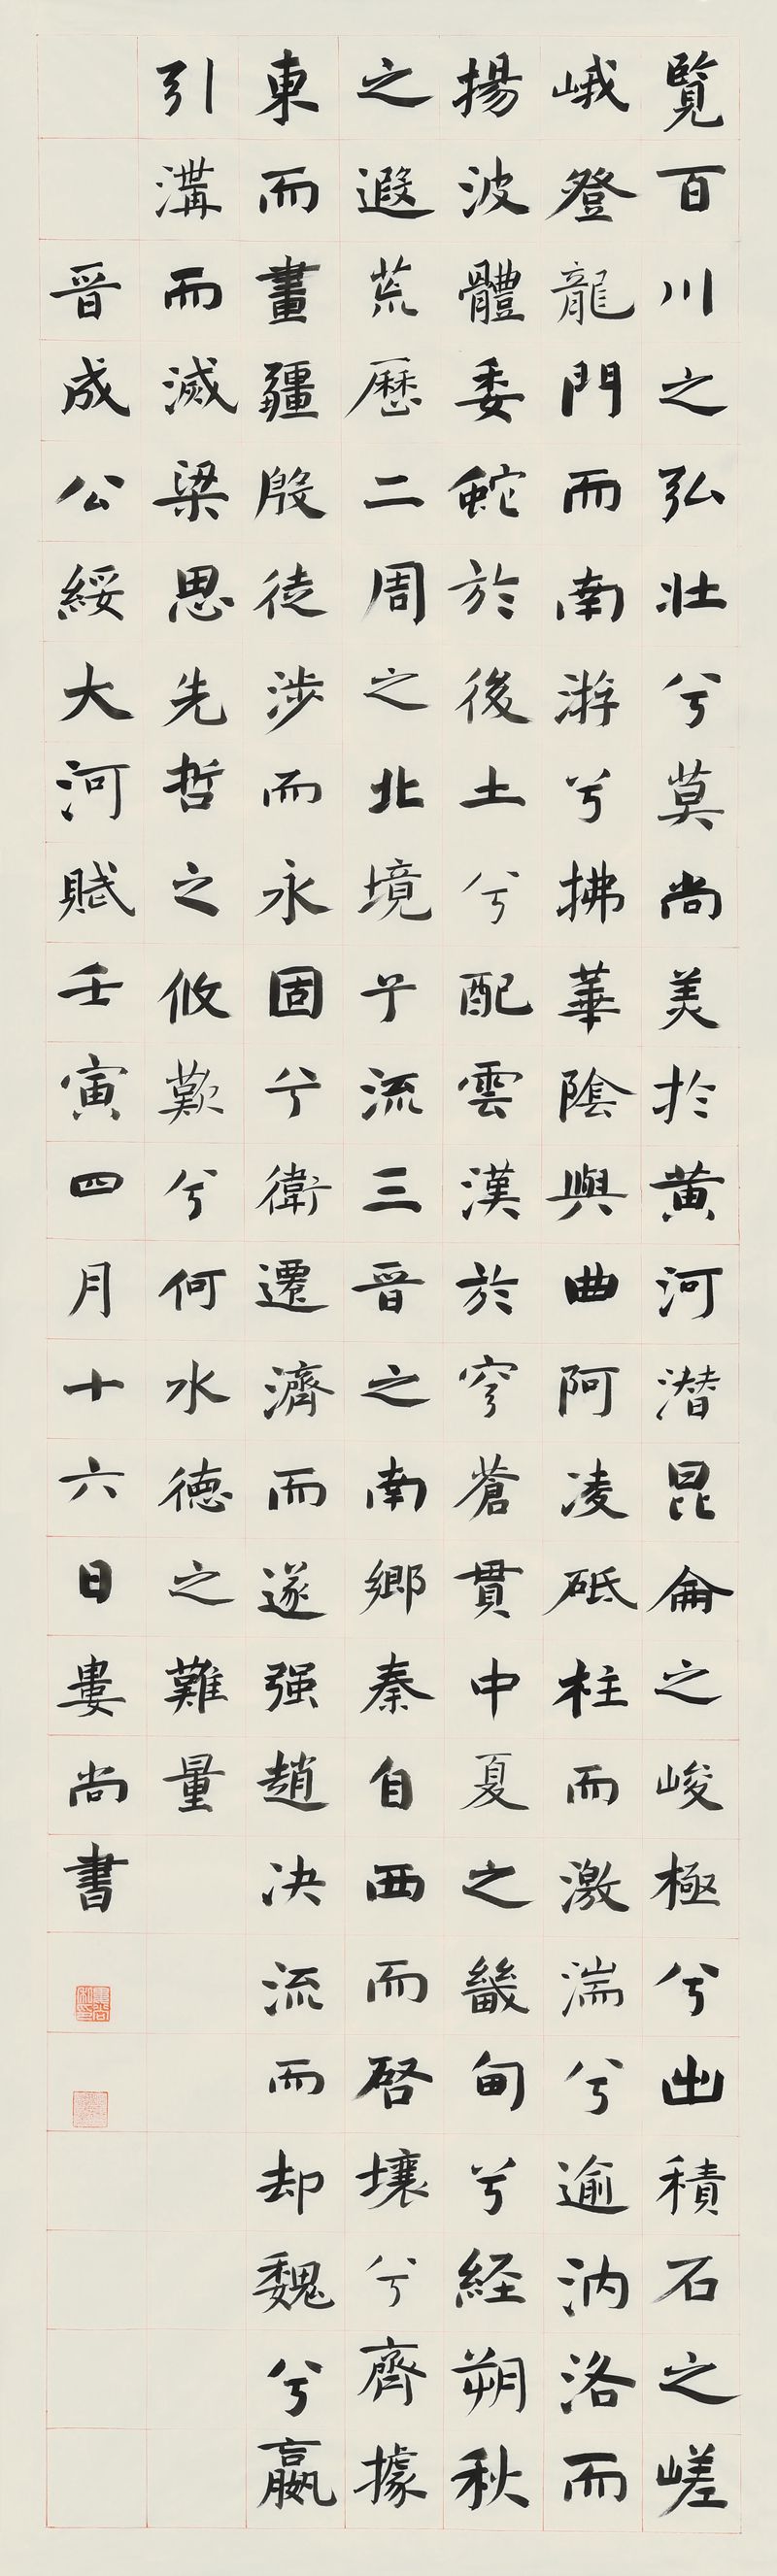 覽百川之弘壯兮莫尚美於黄河潜昆侖之峻極兮出積石之嵯
峨登龍門而南游兮拂華陰與曲阿凌砥柱而激湍兮逾汭洛而
揚波體委蛇於後土兮配雲漢於穹蒼貫中夏之畿甸兮経朔秋
之遐荒歷二周之北境兮流三晋之南鄉秦自西而啓壤兮齊據
東而畫疆殷徒涉而永固兮衛遷濟而遂强趙决流而却魏兮嬴
引溝而滅梁思先哲之攸歎兮何水德之難量
晋成公綏大河賦壬寅四月十六日婁尚書